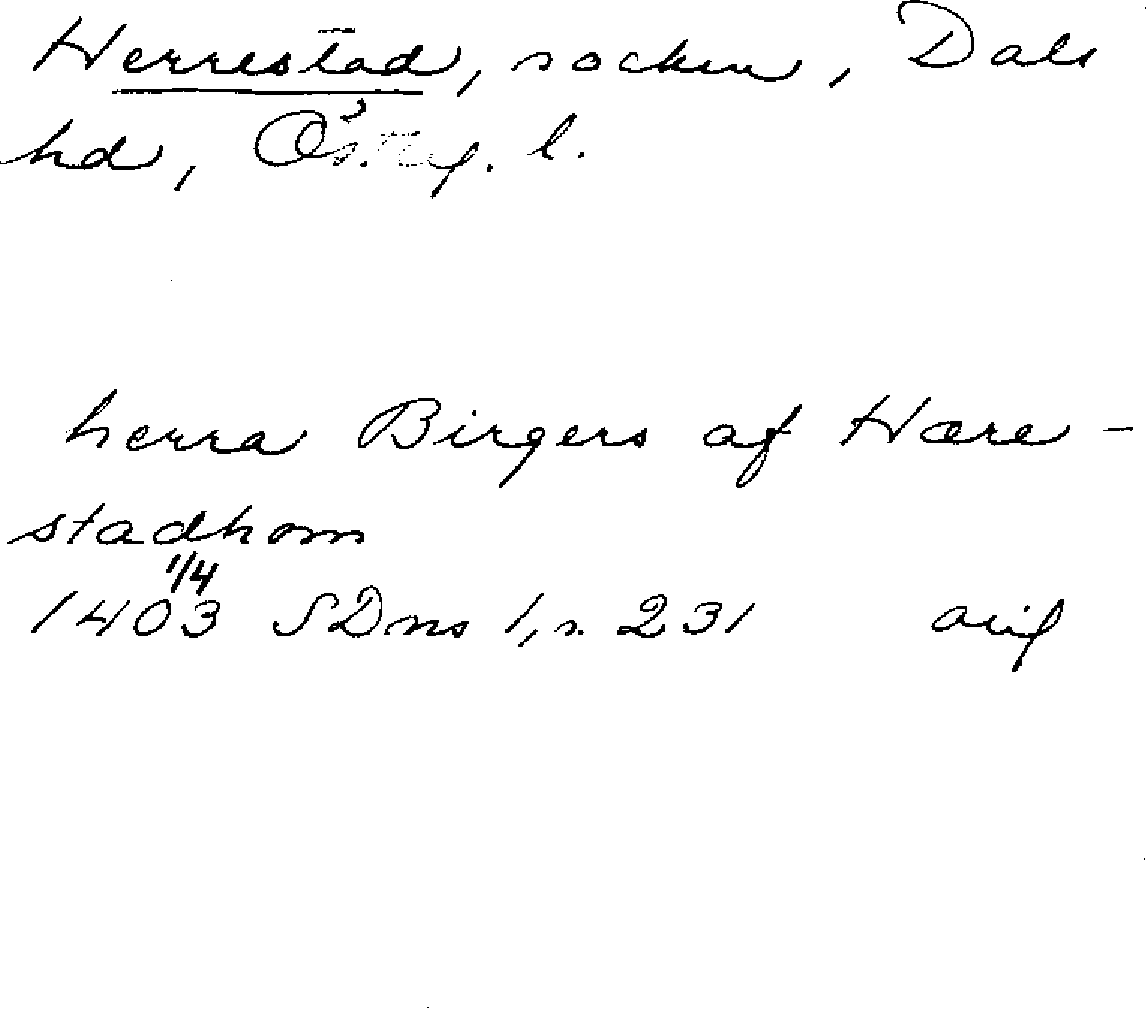 Herrestad, socken, Dals
hd, Östg. l.
herra Birgers af Hære-
stadhom
1/4
1403 SDns 1, s. 231 orig